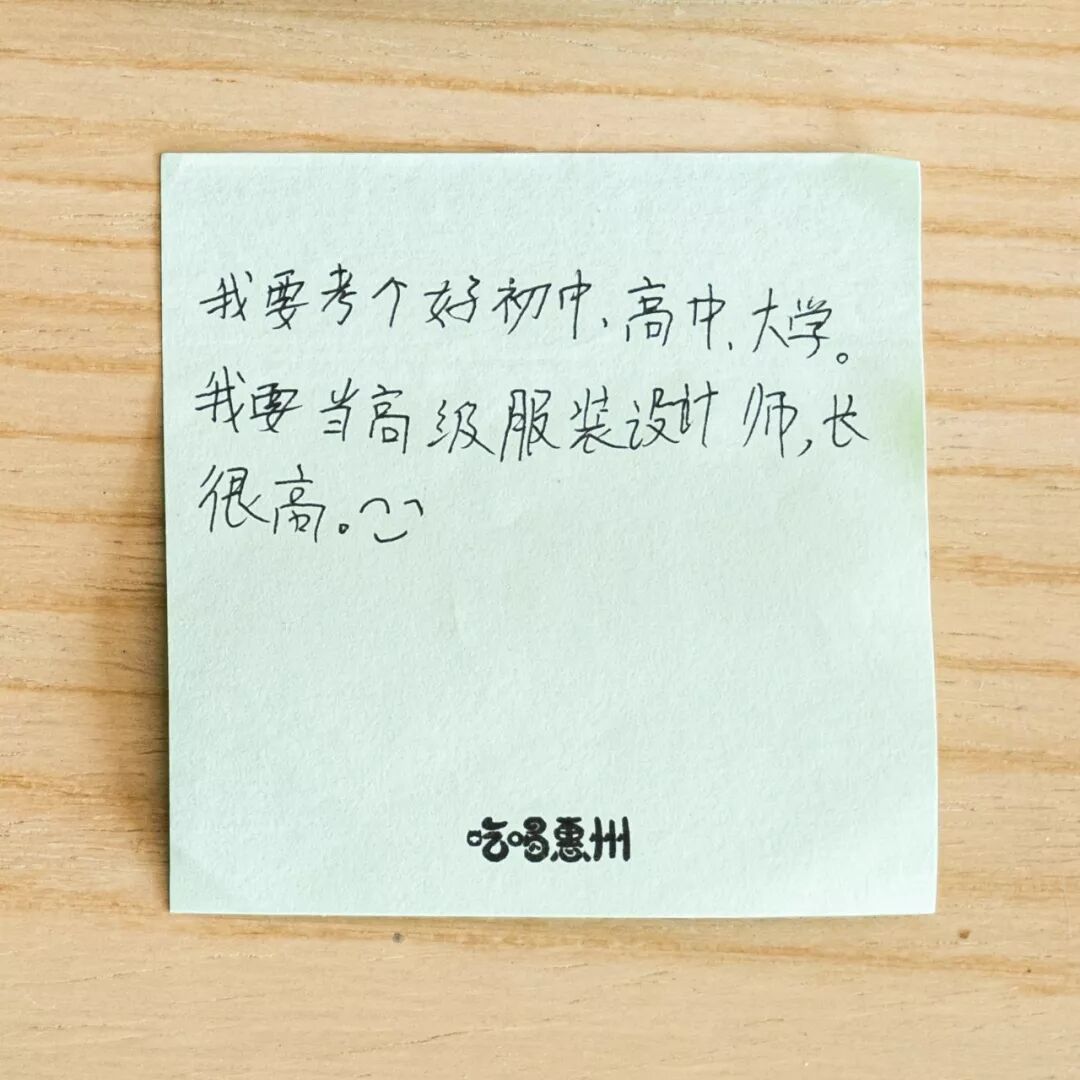 我要考个好初中、高中、大学。
我要当高级服装设计师,长
很高。
吃喝惠州